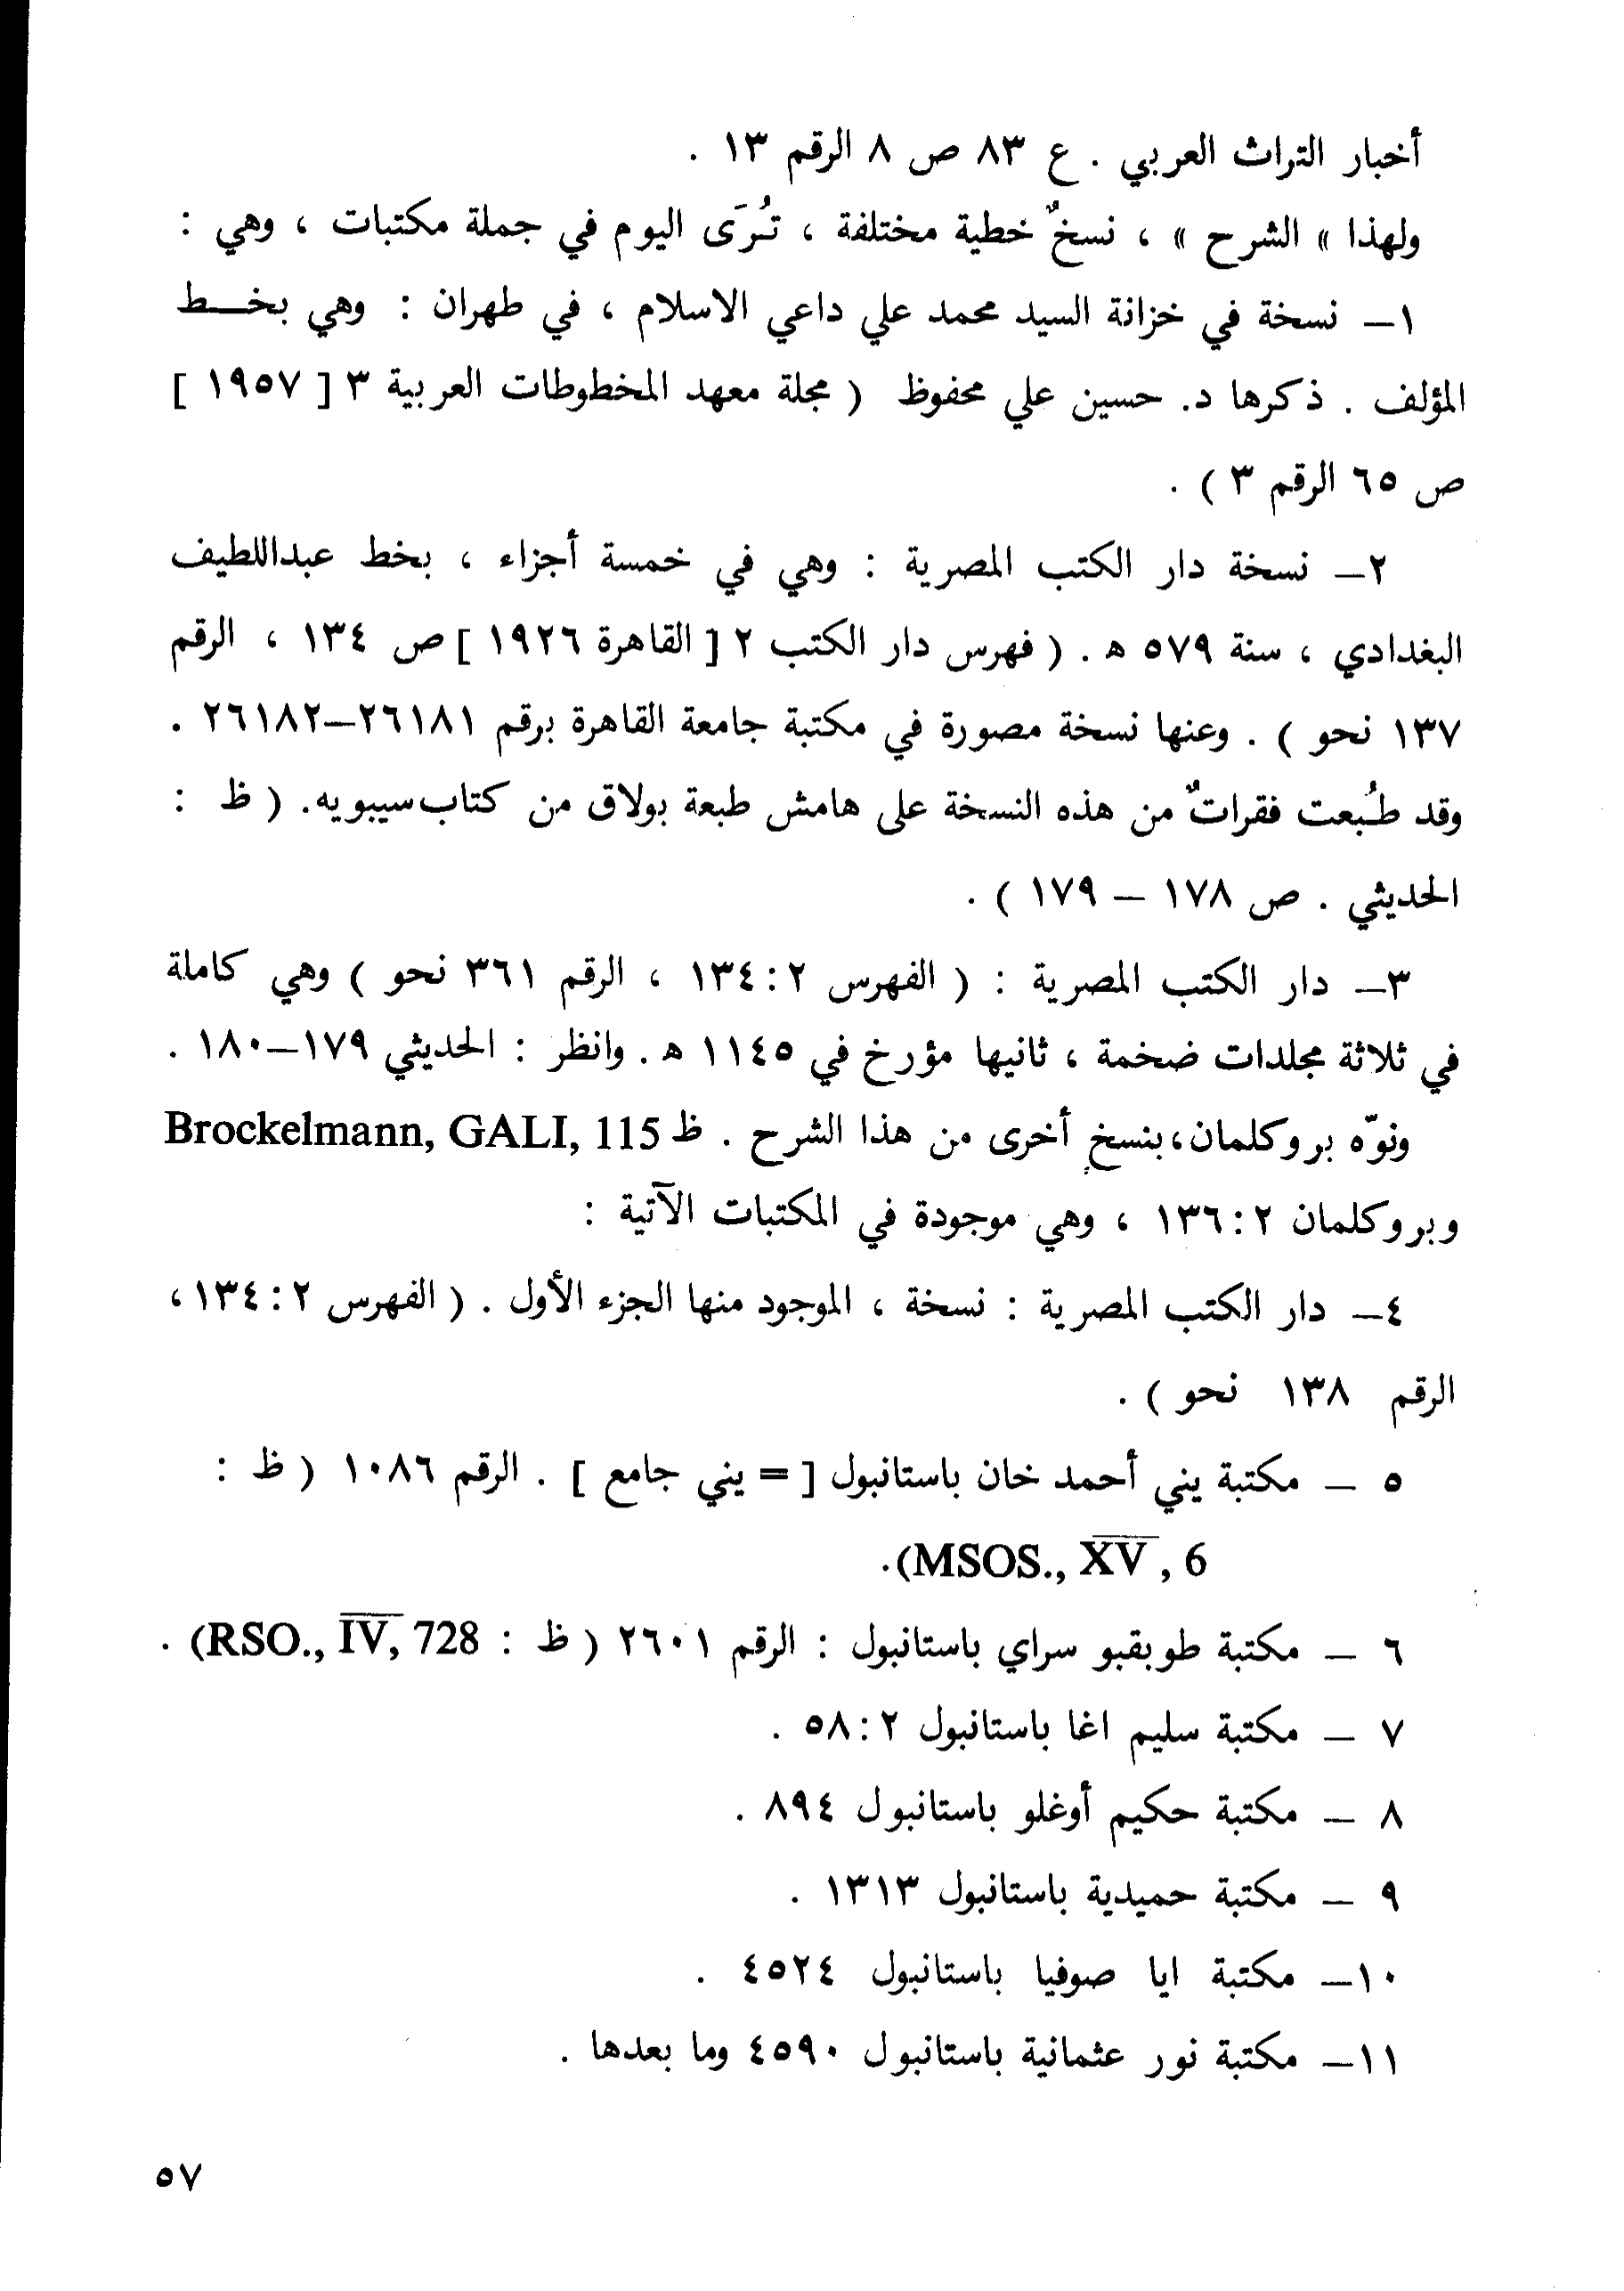 أخبار التراث العربي . ع ٨٣ ص ٨ الرقم ١٣ .
ولهذا « الشرح » ، نسخٌ خطية مختلفة ، تُرَى اليوم في جملة مكتبات ، وهي :
١– نسخة في خزانة السيد محمد علي داعي الاسلام ، في طهران : وهي بخـط
المؤلف . ذكرها د. حسين علي محفوظ ( مجلة معهد المخطوطات العربية ٣ [ ١٩٥٧ ]
ص ٦٥ الرقم ٣ ) .
٢– نسخة دار الكتب المصرية : وهي في خمسة أجزاء ، بخط عبداللطيف
البغدادي ، سنة ٥٧٩ ه . ( فهرس دار الكتب ٢ [ القاهرة ١٩٢٦ ] ص ١٣٤ ، الرقم
١٣٧ نحو ) . وعنها نسخة مصورة في مكتبة جامعة القاهرة برقم ٢٦١٨١–٢٦١٨٢ .
وقد طُبعت فقراتٌ من هذه النسخة على هامش طبعة بولاق من كتاب سيبويه. ( ظ :
الحديثي . ص ١٧٨ – ١٧٩ ) .
٣– دار الكتب المصرية : ( الفهرس ٢ : ١٣٤ ، الرقم ٣٦١ نحو ) وهي كاملة
في ثلاثة مجلدات ضخمة ، ثانيها مؤرخ في ١١٤٥ ه . وانظر : الحديثي ١٧٩–١٨٠ .
ونوّه بروكلمان، بنسخٍ أخرى من هذا الشرح . ظ Brockelmann, GALI, 115
وبروكلمان ٢ : ١٣٦ ، وهي موجودة في المكتبات الآتية :
٤– دار الكتب المصرية : نسخة ، الموجود منها الجزء الأول . ( الفهرس ٢ : ١٣٤ ،
الرقم ١٣٨ نحو ) .
٥ – مكتبة يني أحمد خان باستانبول [ = يني جامع ] . الرقم ١٠٨٦ ( ظ :
.(MSOS., XV, 6
٦ – مكتبة طوبقبو سراي باستانبول : الرقم ٢٦٠١ ( ظ : RSO., IV, 728) .
٧ – مكتبة سليم اغا باستانبول ٢ : ٥٨ .
٨ – مكتبة حكيم أوغلو باستانبول ٨٩٤ .
٩ – مكتبة حميدية باستانبول ١٣١٣ .
١٠– مكتبة ايا صوفيا باستانبول ٤٥٢٤ .
١١– مكتبة نور عثمانية باستانبول ٤٥٩٠ وما بعدها .
٥٧